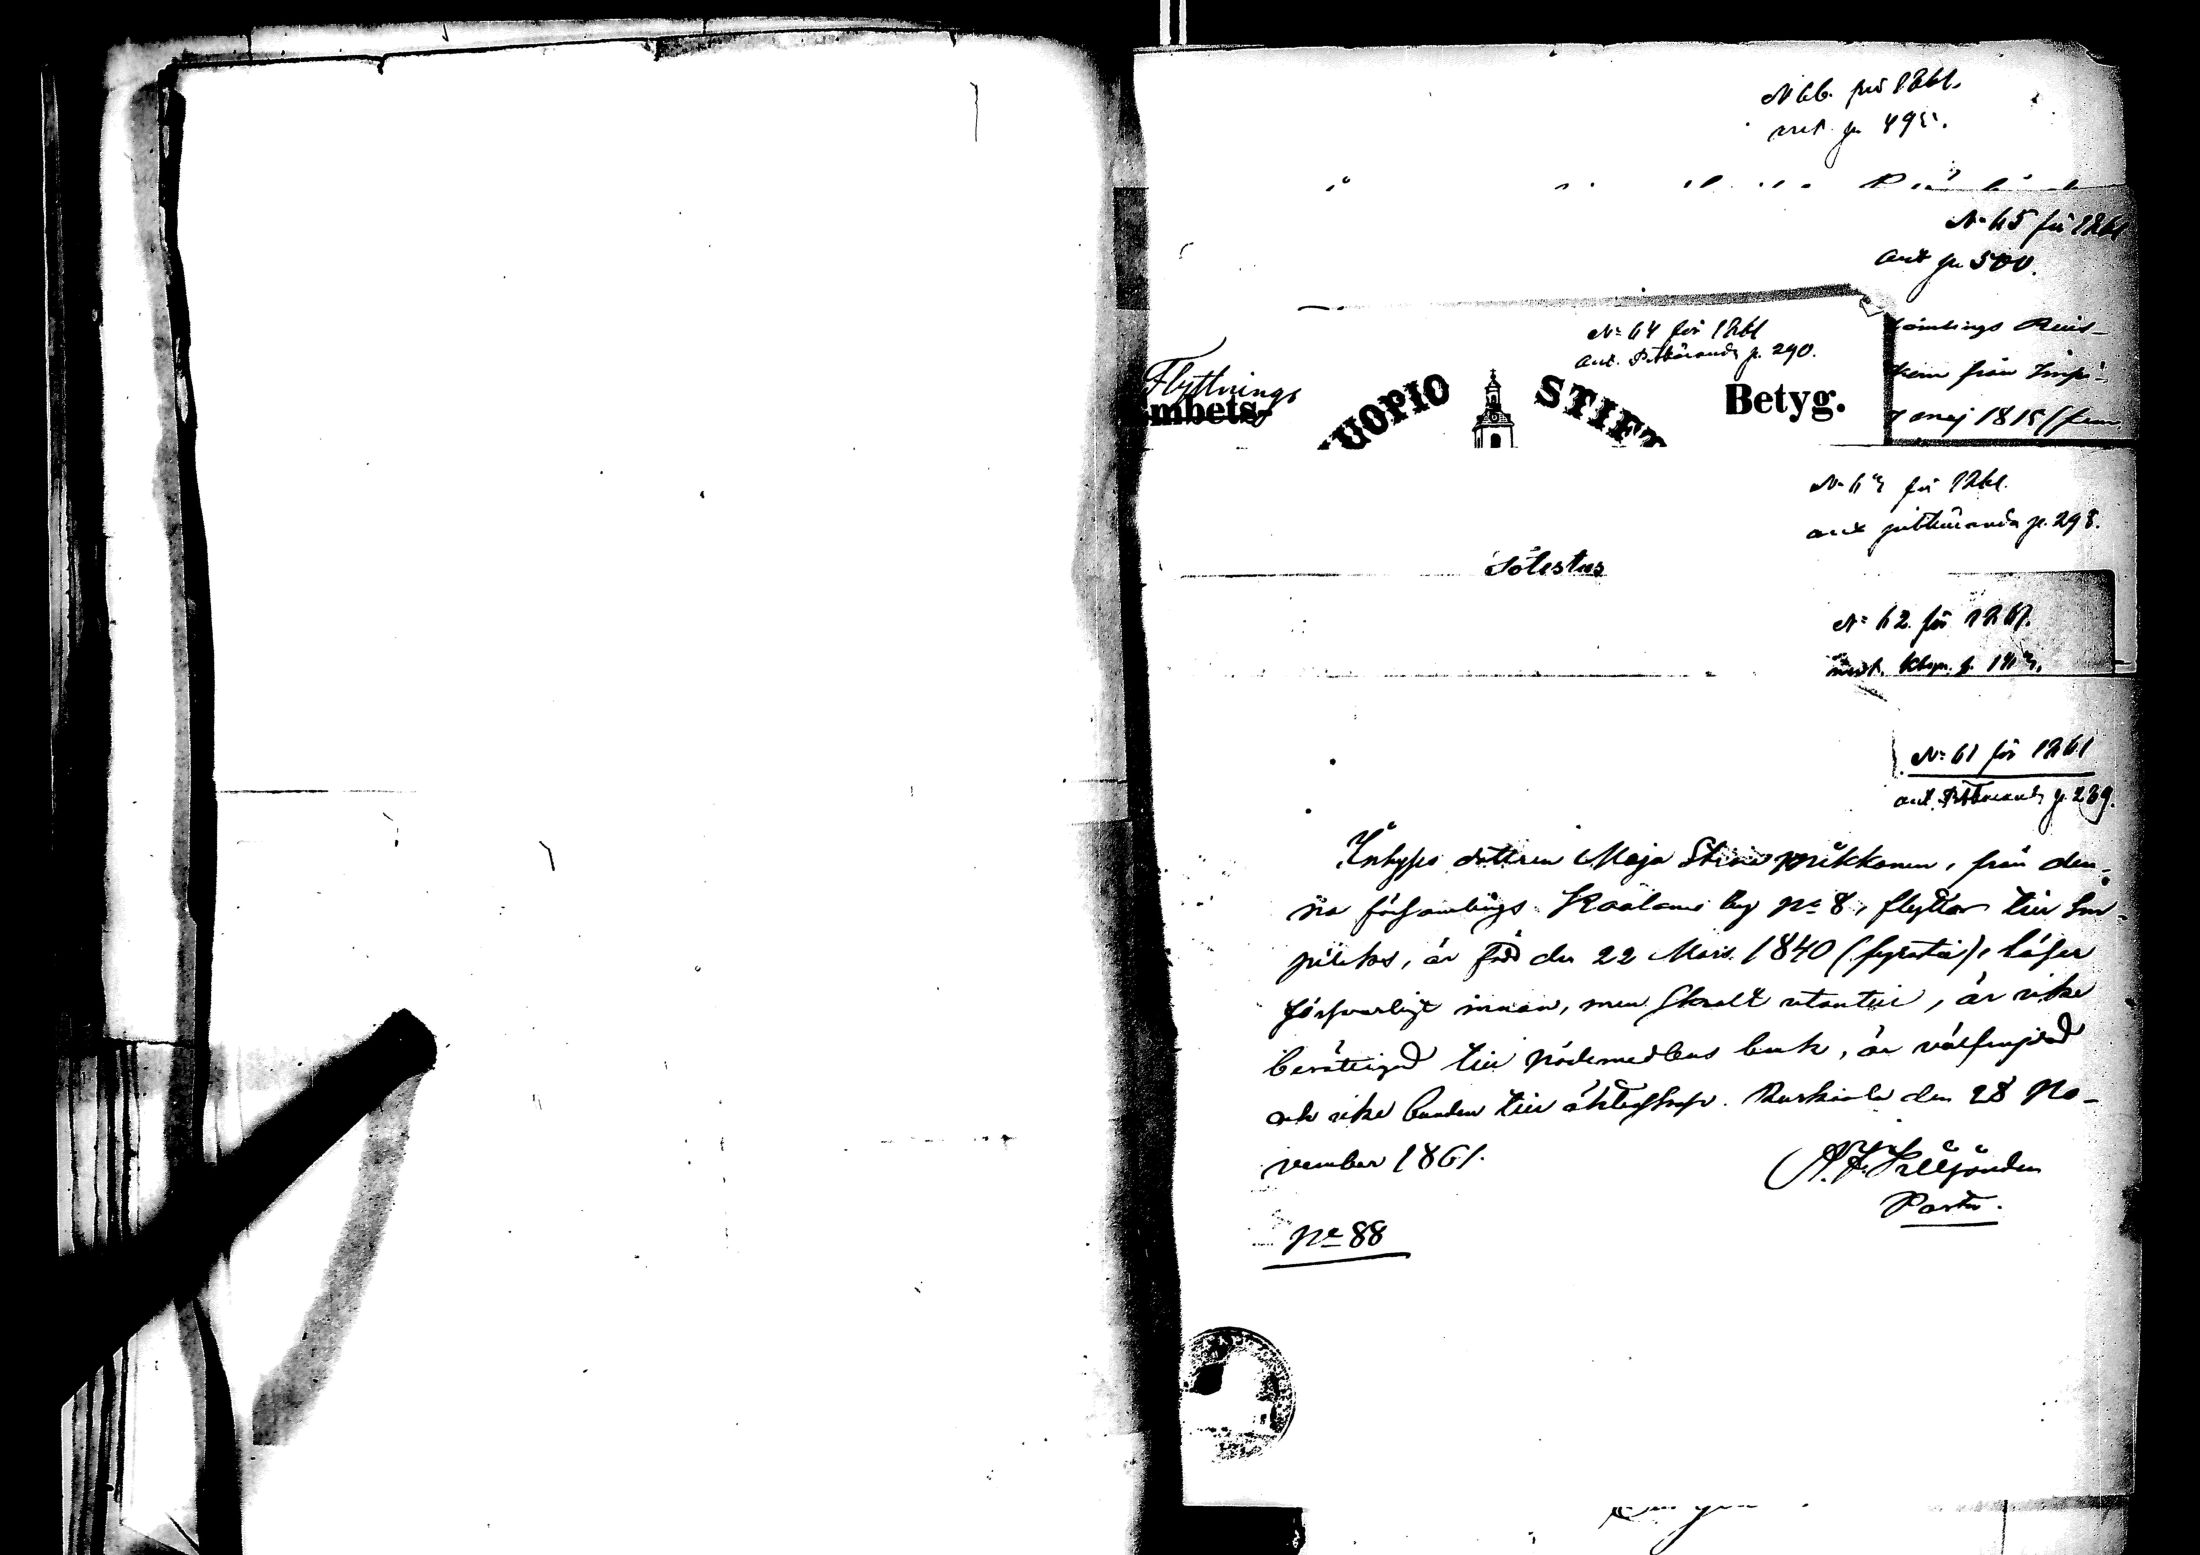 N 66. för 1861.
ant. p. 495.
N: 65 för 1861
ant p. 500.
N: 64 för 1861
ant. Pitkäranda p. 290.
Flyttnings
mbets- UOPIO STIFT Betyg.
samlings
från Impi-
maj 1815
N: 63 för 1861.
ant pitkäranda p. 298.
Sotestus
N: 62 för 1861.
ant. p. 143.
N: 61 för 1861
ant. Pitkärand p. 289.
Inhyses dottren Maja Stina Prikkonen, från den-
na församlings Kaalamo by No 8, flyttar till Im-
pilaks, är född den 22 Mars 1840 (fyratio), läser
försvarligt innan, men skralt utantill, är icke
berättigad till nådemedlens bruk, är välfrejdad
och icke bunden till äktenskap. Ruskiala den 28 No-
vember 1861.
Pastor.
No 88